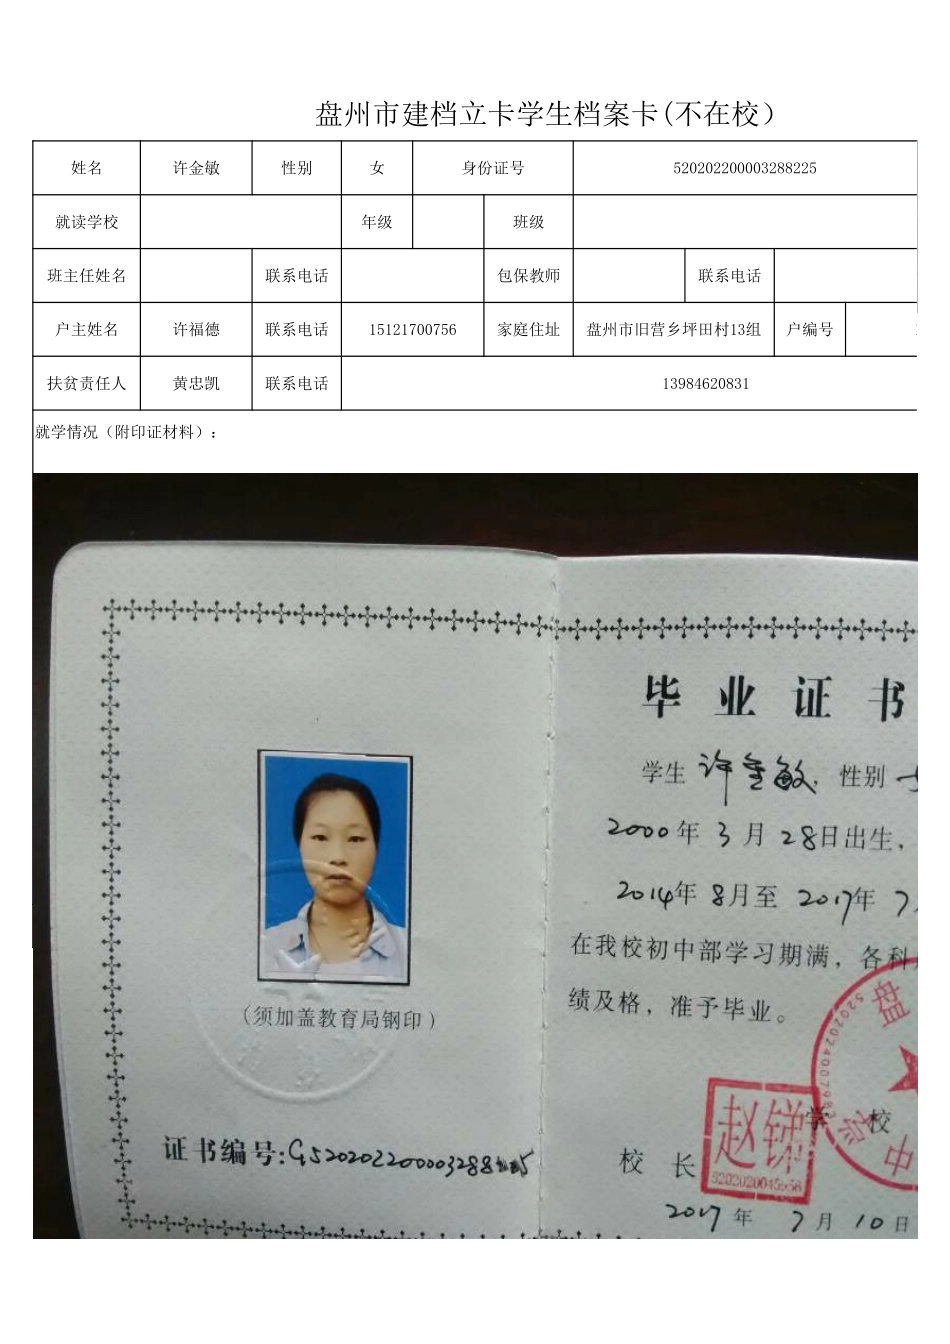 盘州市建档立卡学生档案卡(不在校）
姓名 许金敏 性别 女 身份证号 520202200003288225
就读学校 年级 班级
班主任姓名 联系电话 包保教师 联系电话
户主姓名 许福德 联系电话 15121700756 家庭住址 盘州市旧营乡坪田村13组 户编号
扶贫责任人 黄忠凯 联系电话 13984620831
就学情况（附印证材料）：
毕 业 证 书
学生 许金敏. 性别
2000年 3 月 28日出生，
2014年 8月至 2017年 7
在我校初中部学习期满，各科
绩及格，准予毕业。
（须加盖教育局钢印）
证书编号:G5202022000032882
学 校
校 长
赵锐
盘
中
2017 年 7 月 10 日